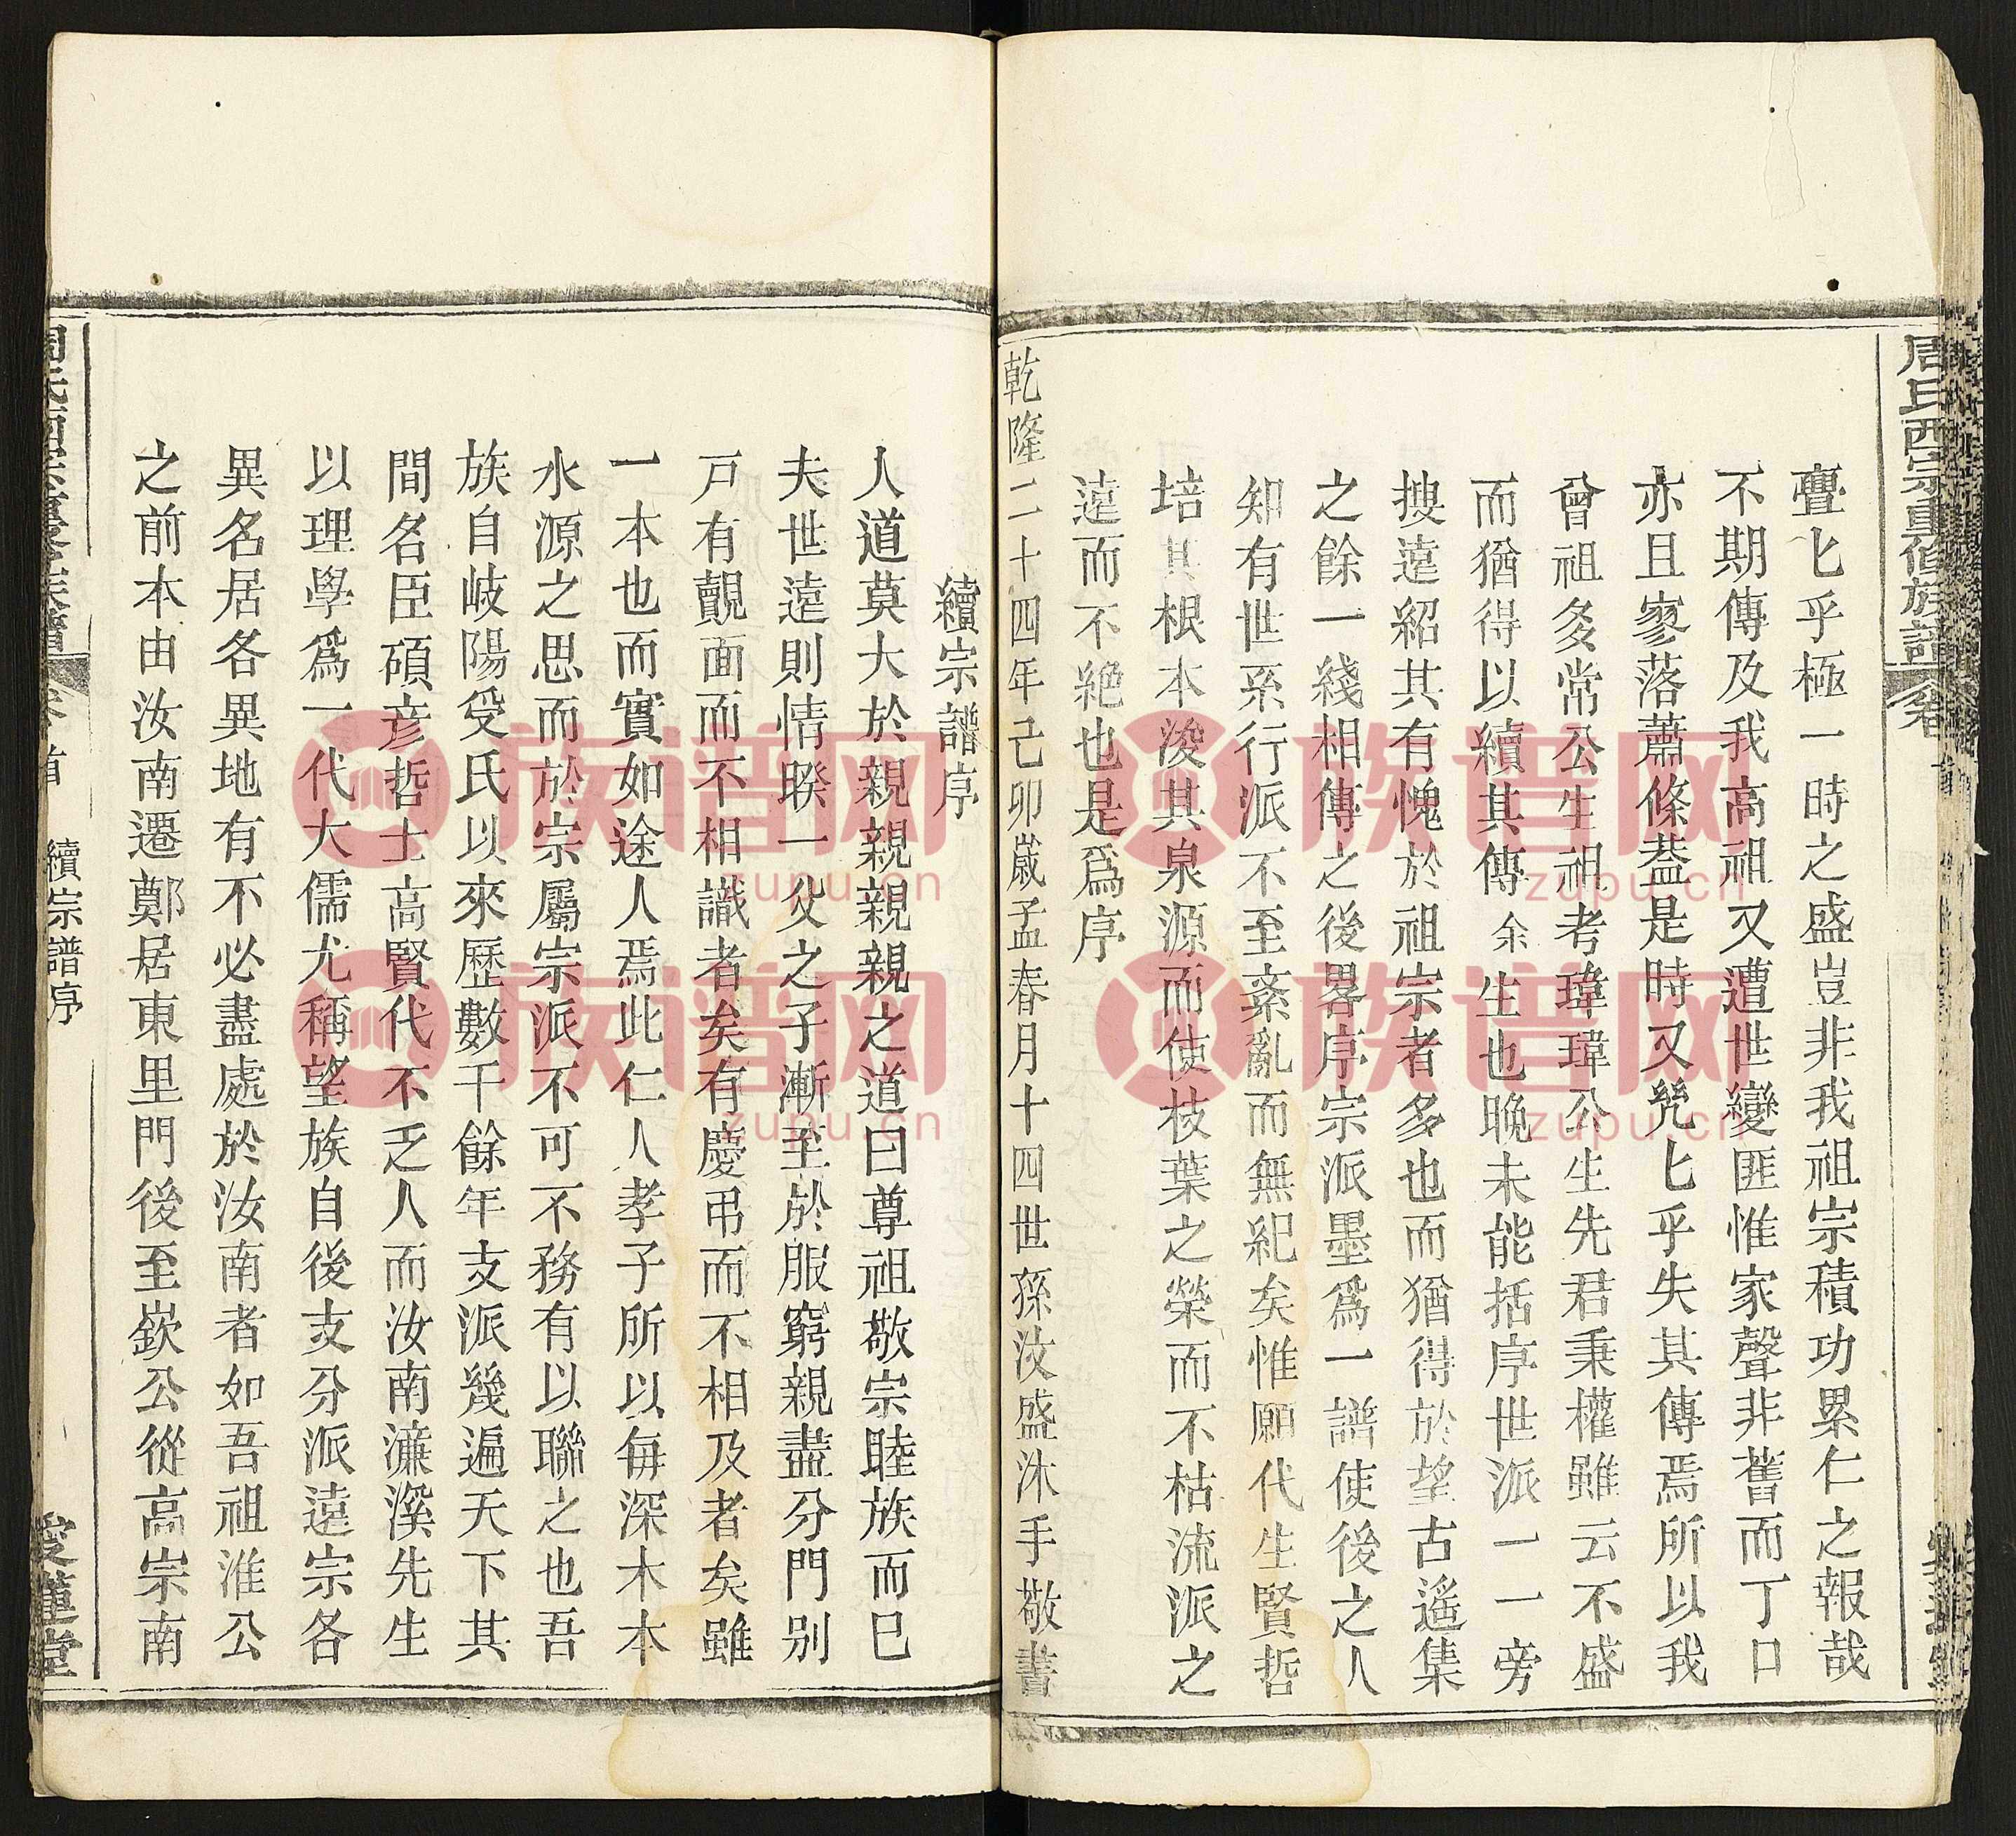 周氏西宗重修族譜 卷首
亹匕乎極一時之盛豈非我祖宗積功累仁之報哉
不期傳及我高祖又遭世變匪惟家聲非舊而丁口
亦且寥落蕭條葢是時又兠匕乎失其傳焉所以我
曾祖㚊常公生祖考瑋瑋公生先君秉權雖云不盛
而猶得以續其傳余生也晚未能括序世派一一旁
搜遠紹其有愧於祖宗者多也而猶得於望古遙集
之餘一綫相傳之後畧序宗派墨爲一譜使後之人
知有世系行派不至紊亂而無紀矣惟願代生賢哲
培其根本浚其泉源而使枝葉之榮而不枯流派之
遠而不絶也是爲序
乾隆二十四年己卯歲孟春月十四世孫汶盛沐手敬書
續宗譜序
人道莫大於親親親親之道曰尊祖敬宗睦族而已
夫世遠則情暌一父之子漸至於服窮親盡分門別
戸有覿面而不相識者矣有慶弔而不相及者矣雖
一本也而實如途人焉此仁人孝子所以每深木本
水源之思而於宗屬宗派不可不務有以聯之也吾
族自岐陽受氏以來歷數千餘年支派幾遍天下其
間名臣碩彦哲士高賢代不乏人而汝南濂溪先生
以理學爲一代大儒尤稱望族自後支分派遠宗各
異名居各異地有不必盡處於汝南者如吾祖淮公
之前本由汝南遷鄭居東里門後至嶔公從高宗南
續宗譜序
愛蓮堂
族谱网
zupu.cn
族谱网
zupu.cn
族谱网
zupu.cn
族谱网
zupu.cn